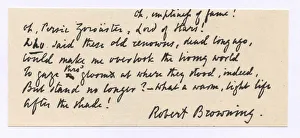 Oh, emptiness of fame!
Oh, Persic Zoroaster, Lord of Stars!
Who said these old renowns, dead long ago,
Could make me overlook the living world
To gaze thro' gloom at where they stood, indeed,
But stand no longer? – What a warm, light life
After the shade!
Robert Browning.